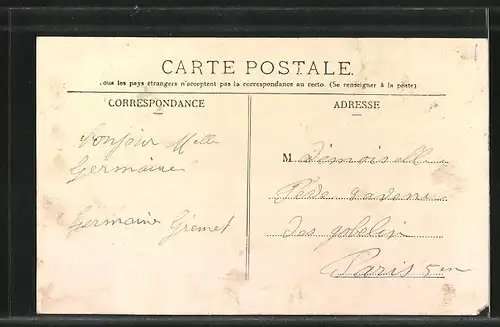 CARTE POSTALE.
Tous les pays étrangers n'acceptent pas la correspondance au recto. (Se renseigner à la poste)
CORRESPONDANCE
ADRESSE
bonjour Melle
Germaine
Germaine Grémet
M demoiselle
des gobelin
Paris 5em